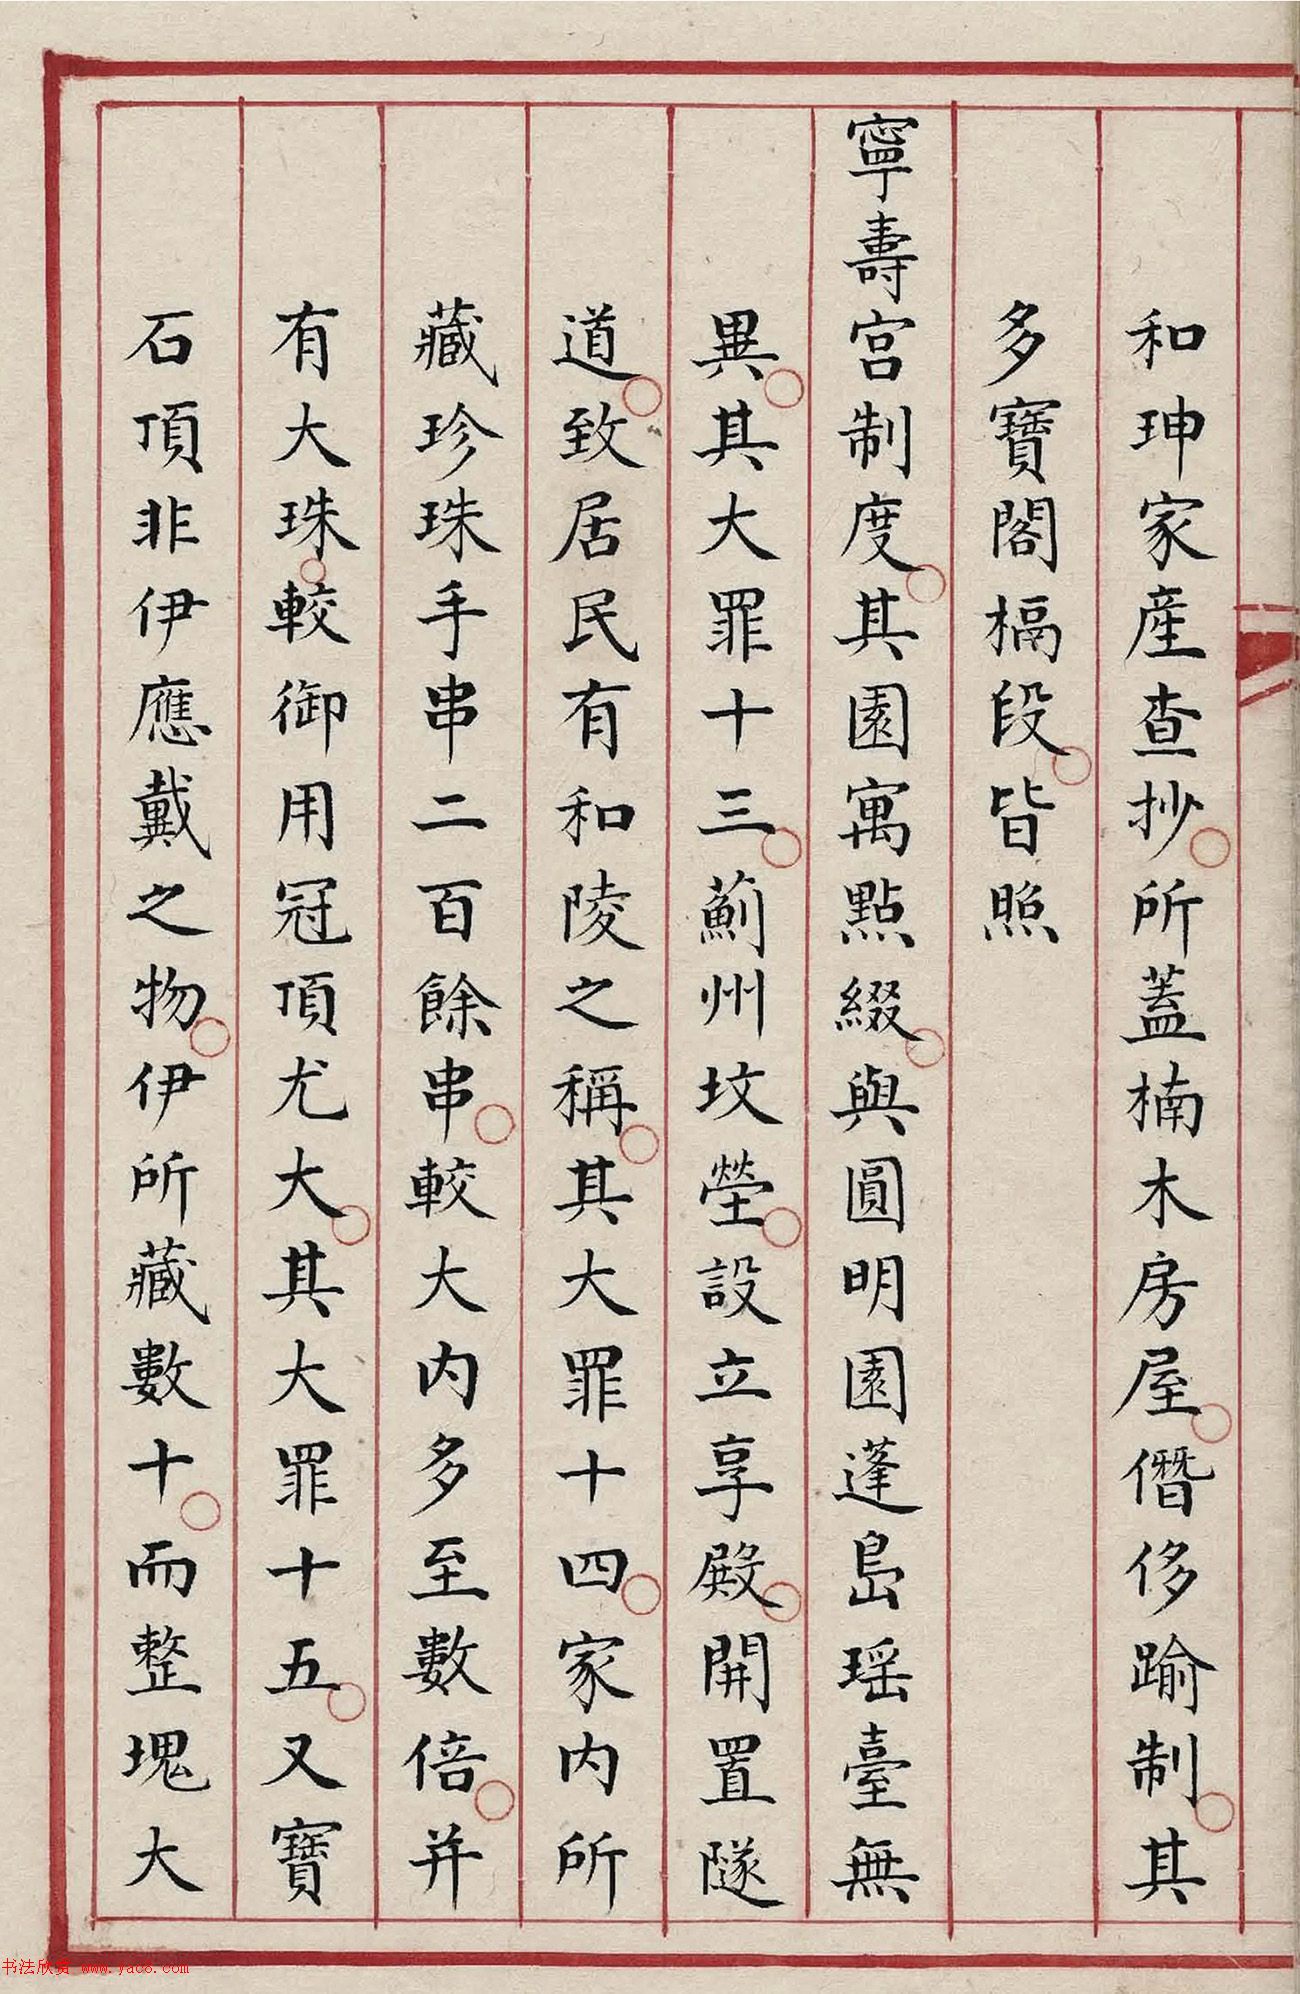 和珅家產查抄所蓋楠木房屋僭侈踰制其
多寶閣槅段皆照
寧壽宮制度其園寓點綴與圓明園蓬島瑤臺無
異其大罪十三薊州墳塋設立享殿開置隧
道致居民有和陵之稱其大罪十四家內所
藏珍珠手串二百餘串較大內多至數倍并
有大珠較御用冠頂尤大其大罪十五又寶
石頂非伊應戴之物伊所藏數十而整塊大
书法欣赏 www.yac8.com